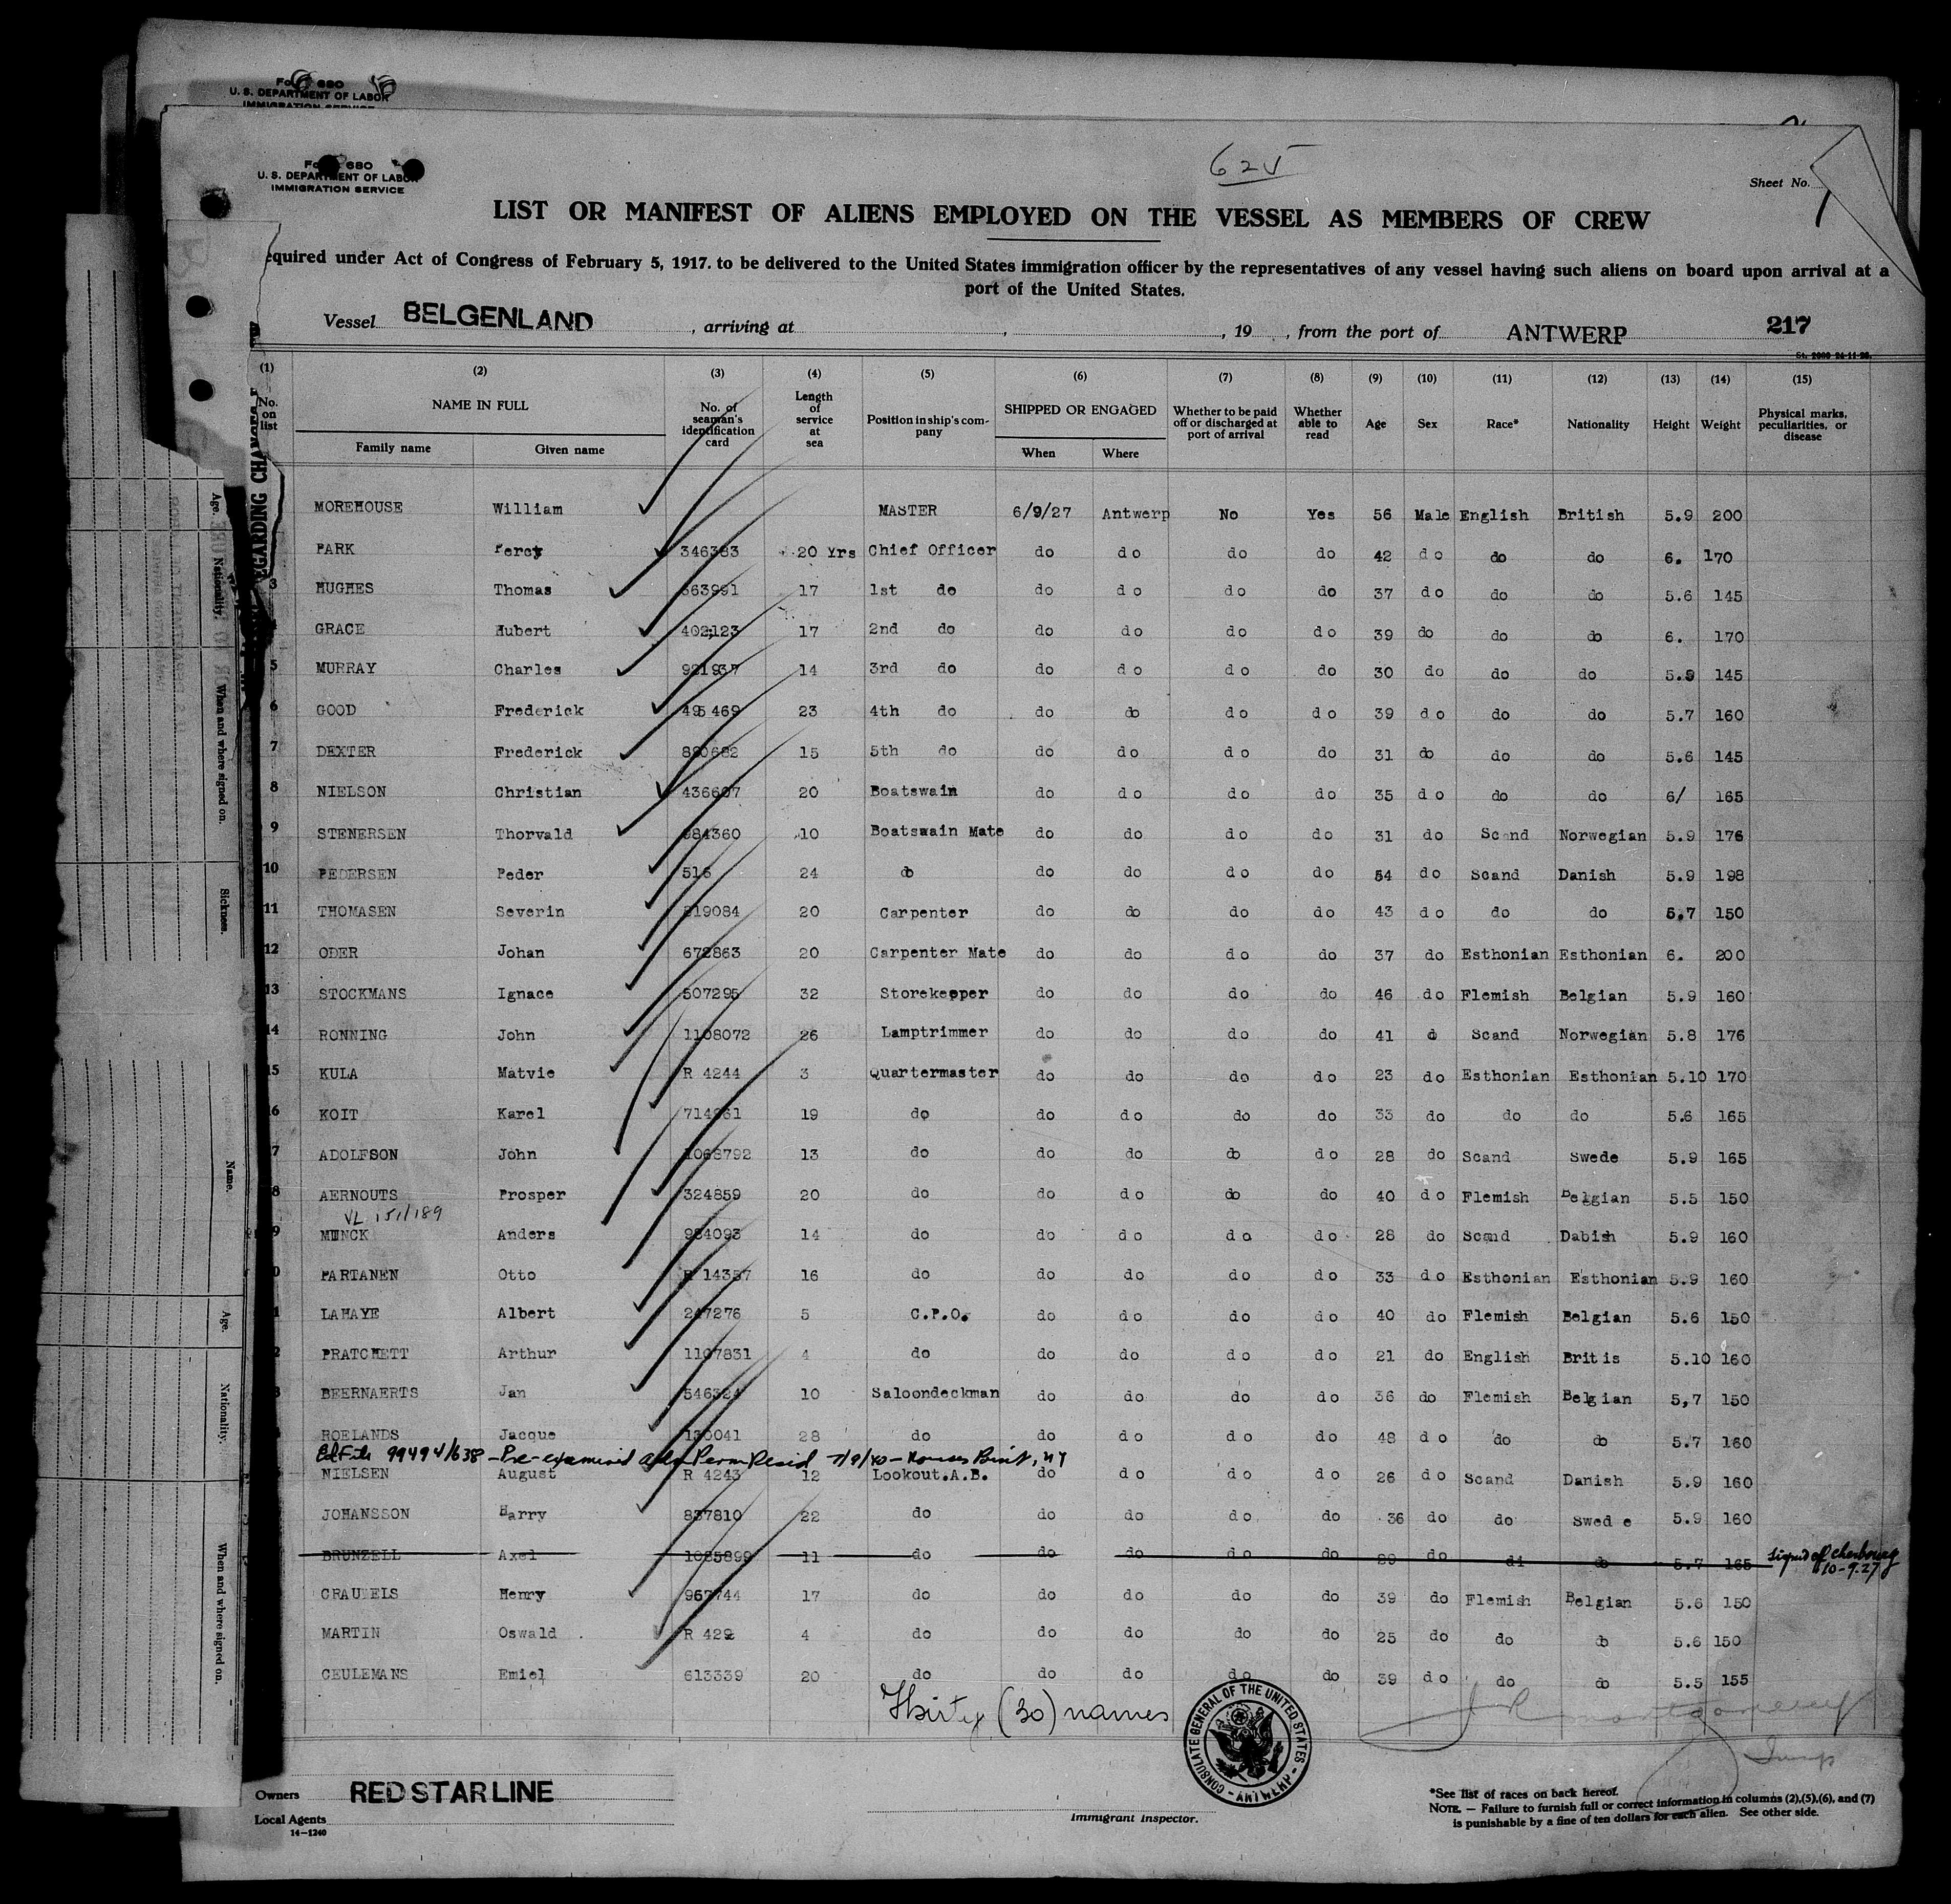 Fo 680
U. S. DEPARTMENT OF LABOR
IMMIGRATION SERVICE
Fo 680
U. S. DEPARTMENT OF LABOR
IMMIGRATION SERVICE
625
Sheet No. 1
LIST OR MANIFEST OF ALIENS EMPLOYED ON THE VESSEL AS MEMBERS OF CREW
equired under Act of Congress of February 5, 1917. to be delivered to the United States immigration officer by the representatives of any vessel having such aliens on board upon arrival at a
port of the United States.
Vessel BELGENLAND , arriving at , , 19 , from the port of ANTWERP 217
(1) (2) (3) (4) (5) (6) (7) (8) (9) (10) (11) (12) (13) (14) (15)
No. on list NAME IN FULL Family name Given name No. of seaman's identification card Length of service at sea Position in ship's company SHIPPED OR ENGAGED When Where Whether to be paid off or discharged at port of arrival Whether able to read Age Sex Race* Nationality Height Weight Physical marks, peculiarities, or disease
MOREHOUSE William MASTER 6/9/27 Antwerp No Yes 56 Male English British 5.9 200
PARK Percy 346383 20 Yrs Chief Officer do do do do 42 do do do 6. 170
3 HUGHES Thomas 363991 17 1st do do do do do 37 do do do 5.6 145
GRACE Hubert 402123 17 2nd do do do do do 39 do do do 6. 170
5 MURRAY Charles 921937 14 3rd do do do do do 30 do do do 5.9 145
6 GOOD Frederick 495469 23 4th do do do do do 39 do do do 5.7 160
7 DEXTER Frederick 880682 15 5th do do do do do 31 do do do 5.6 145
8 NIELSON Christian 436607 20 Boatswain do do do do 35 do do do 6/ 165
9 STENERSEN Thorvald 984360 10 Boatswain Mate do do do do 31 do Scand Norwegian 5.9 176
10 PEDERSEN Peder 516 24 do do do do do 54 do Scand Danish 5.9 198
11 THOMASEN Severin 819084 20 Carpenter do do do do 43 do do do 5.7 150
12 ODER Johan 672863 20 Carpenter Mate do do do do 37 do Esthonian Esthonian 6. 200
13 STOCKMANS Ignace 507295 32 Storekeeper do do do do 46 do Flemish Belgian 5.9 160
14 RONNING John 1108072 26 Lamptrimmer do do do do 41 d Scand Norwegian 5.8 176
15 KULA Matvie R 4244 3 Quartermaster do do do do 23 do Esthonian Esthonian 5.10 170
6 KOIT Karel 714961 19 do do do do do 33 do do do 5.6 165
7 ADOLFSON John 1068792 13 do do do do do 28 do Scand Swede 5.9 165
8 AERNOUTS Prosper 324859 20 do do do do do 40 do Flemish Belgian 5.5 150
VL 151/189
9 MUNCK Anders 984093 14 do do do do do 28 do Scand Dabish 5.9 160
0 PARTANEN Otto R 14357 16 do do do do do 33 do Esthonian Esthonian 5.9 160
1 LAHAYE Albert 247276 5 C.P.O. do do do do 40 do Flemish Belgian 5.6 150
2 PRATCHETT Arthur 1107831 4 do do do do do 21 do English Britis 5.10 160
3 BEERNAERTS Jan 546324 10 Saloondeckman do do do do 36 do Flemish Belgian 5,7 150
ROELANDS Jacque 130041 28 do do do do do 48 do do do 5.7 160
File 99494/638 - Pre-examined Perm Resid 7/9/40 - NY
NIELSEN August R 4243 12 Lookout.A.B. do do do do 26 do Scand Danish 5.9 160
JOHANSSON Harry 837810 22 do do do do do 36 do do Swede 5.9 160
BRUNZELL Axel 1085899 11 do do do do do 29 do di do 5.7 165 Signed off Cherbourg
10-9.27
CRAUWELS Henry 967744 17 do do do do do 39 do Flemish Belgian 5.6 150
MARTIN Oswald R 429 4 do do do do do 25 do do do 5.6 150
CEULEMANS Emiel 613339 20 do do do do do 39 do do do 5.5 155
Thirty (30) names
CONSULATE GENERAL OF THE UNITED STATES - ANTWERP
Owners RED STAR LINE
Local Agents
14-1240
Immigrant Inspector.
*See list of races on back hereof.
NOTE. — Failure to furnish full or correct information in columns (2),(5),(6), and (7)
is punishable by a fine of ten dollars for each alien. See other side.
EGARDING CHANGES
Age. Nationality. When and where signed on. Sickness.
Name. Age. Nationality. When and where signed on.